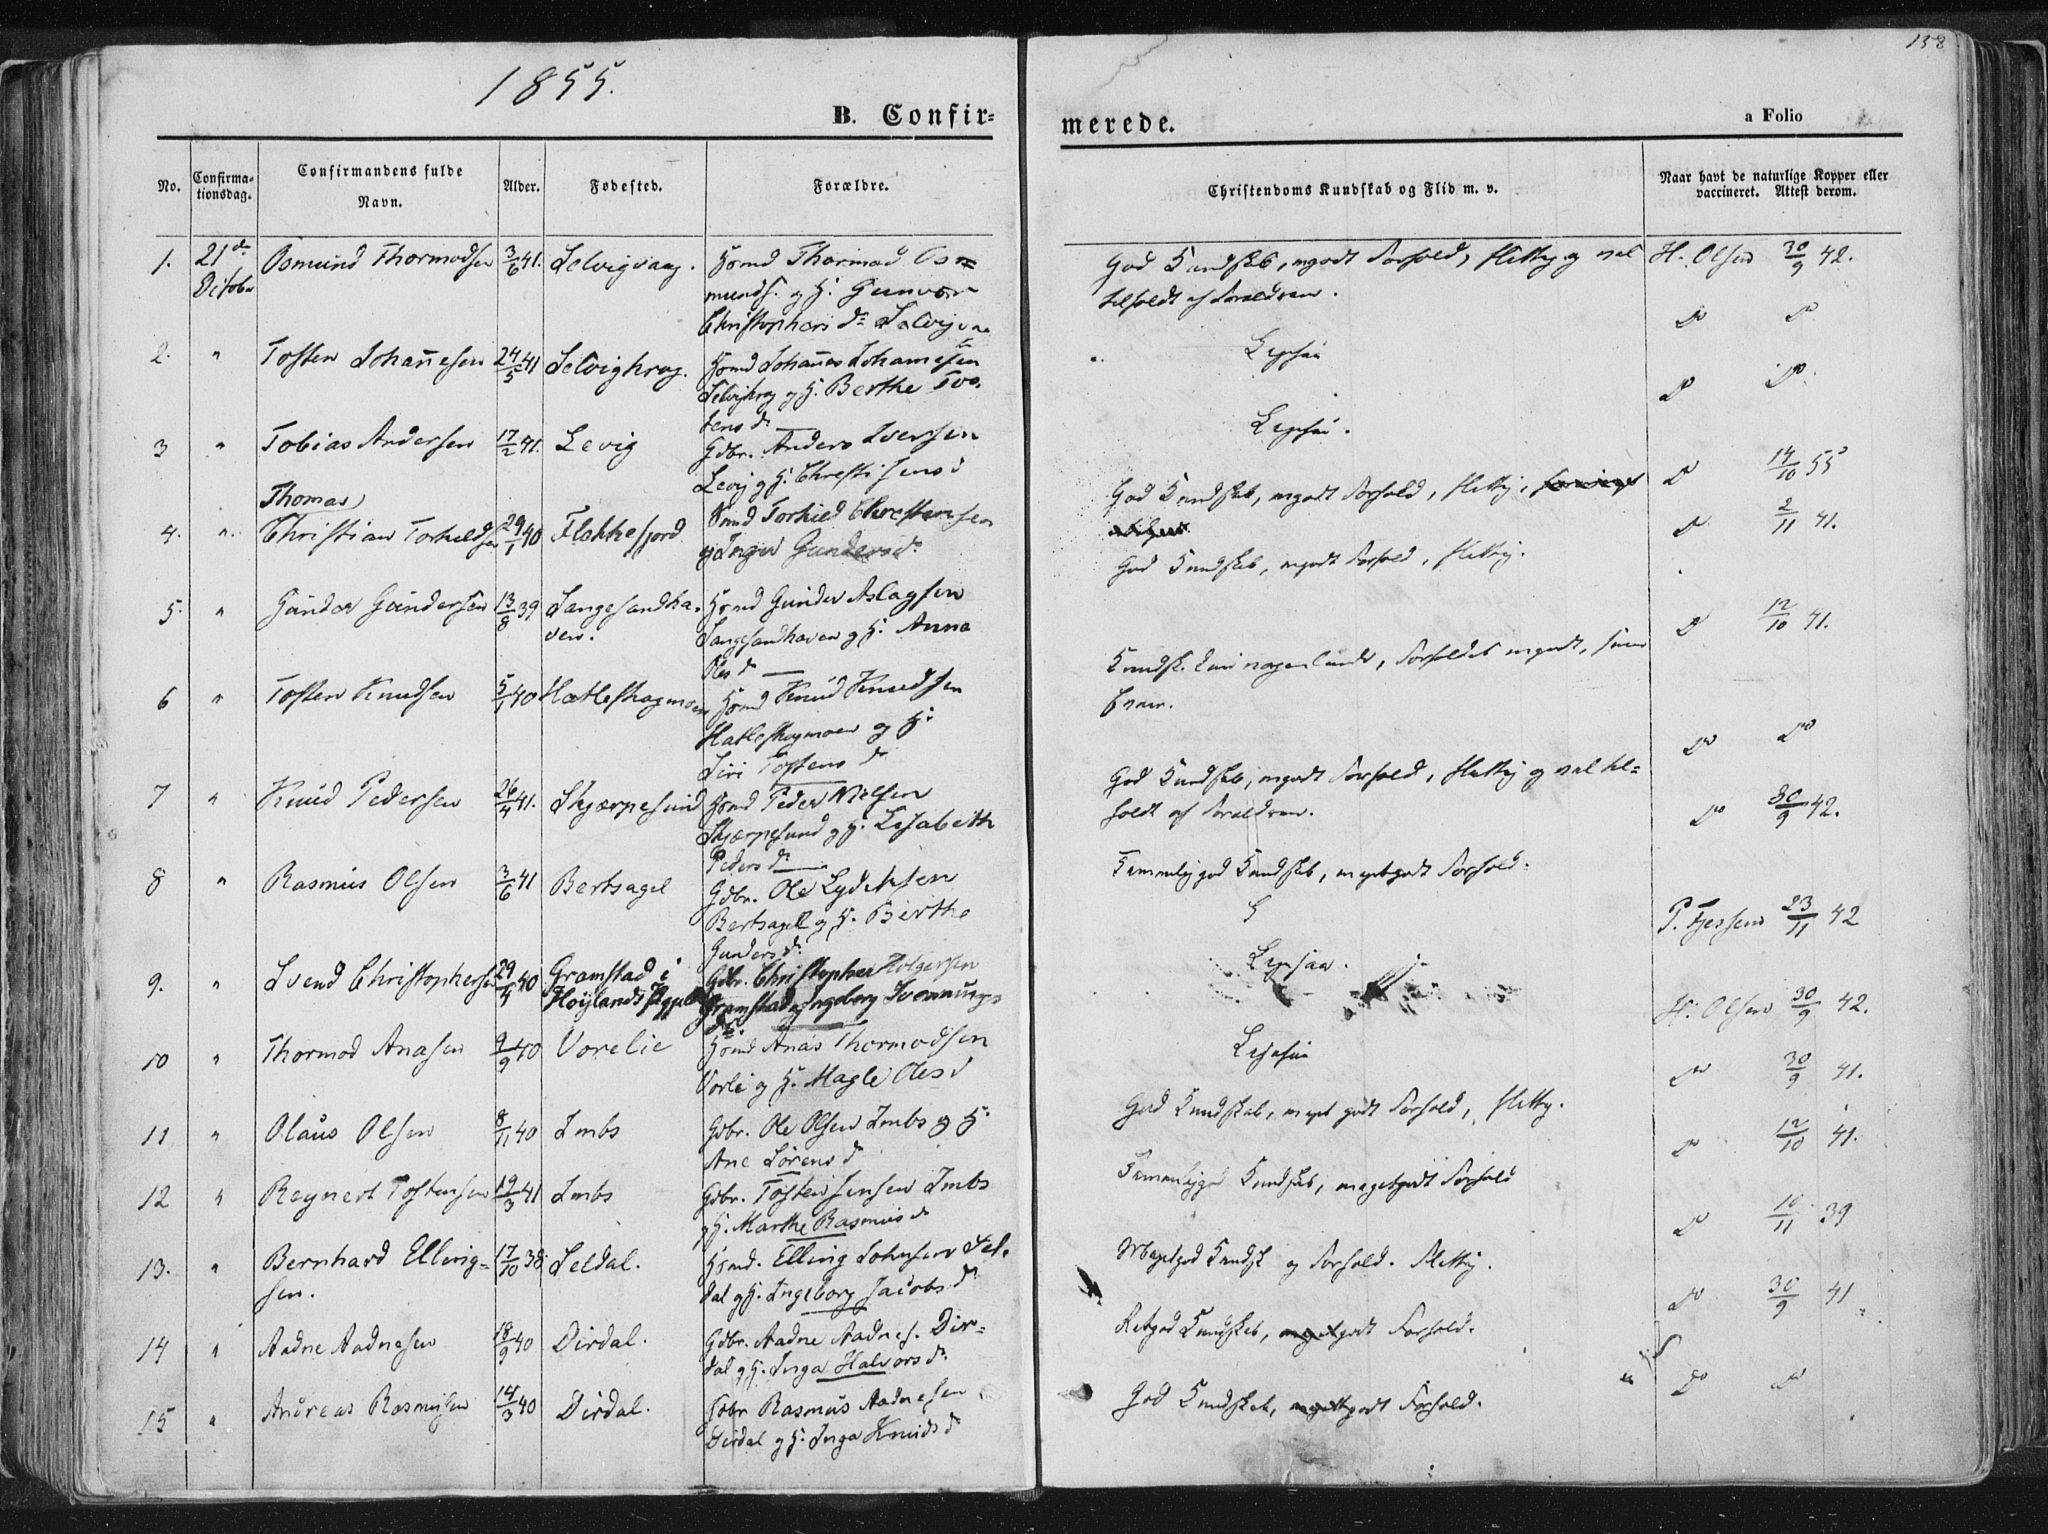 1855.
138
B. Confir-
merede.
a Folio
No.
Confirma-
tionsdag.
Confirmandens fulde
Navn.
Alder.
Fødested.
Forældre.
Christendoms Kundskab og Flid m. v.
Naar havt de naturlige Kopper eller
vaccineret. Attest derom.
1. 21de Osmund Thormodsen 3/6 41. Selvigvaag. Hsmd Thormod Os=
October munds. og H. Gunvor
Christophersd.
God Kundskab, megodt Forhold, flittig og vel H. Olsen 30/9 42.
tilholdt af Forældrene.
2. " Tosten Johannesen 24/5 41 Selvigkrog. Hsmd Johannes Johannesen
Selvigkrog og H. Berthe Tos-
tensd.
Ligesaa
Do Do
3 " Tobias Andersen 17/2 41. Levig Gdbr. Anders Iversen
Levig og H.
Ligesaa.
Do Do
Thomas
4. " Christian Torkildsen 29/1 40 Flekkefjord Torkild Christensen
og Inger Gundersd.
God Kundskab, megodt Forhold, flittig,
Do 14/10 55
5. " Gunder Gundersen 13/8 39 Langesandha- Hsmd Gunder Aslagsen
ven. Langesandhaven og H. Anna
Olesd
God Kundskab, megodt Forhold, flittig.
Do 2/11 41.
6 " Tosten Knudsen 5/1 40 Hatleskogmoen Hsmd Knud Knudsen
Hatleskogmoen og H.
Siri Tostensd
Kundsk. kun nogenlunde, Forholdet megodt,
Do 12/10 41.
7 " Knud Pedersen 26/4 41. Skjærpesund Hsmd Peder Nielsen
Skjærpesund og H. Lisabeth
Pedersd
God Kundskab, megodt Forhold, flittig og vel til=
holdt af Forældrene.
Do Do
8 " Rasmus Olsen 3/6 41 Bertsagel Gdbr. Ole
Bertsagel og H. Berthe
Gundersd.
Temmelig god Kundskab, meget godt Forhold.
Do 30/9 42.
9. " Svend Christophersen 29/4 40 Gramstad i Gdbr. Christopher Holgersen
Høylands Gramstad og Ingeborg Svennungs-
d.
Ligesaa.
P. Tjessem 23/11 42
10 " Thormod Anasen 9/9 40 Vorelie Hsmd Anas Thormodsen
Vorli og H. Magle Olesd
Ligesaa
H. Olsen 30/9 42.
11 " Olaus Olsen 8/11 40 Imbs Gdbr. Ole Olsen Imbs og H.
Ane Sørensd
God Kundskab, meget godt Forhold, flittig.
Do 30/9 41.
12 " Reynert Tostensen 19/3 41 Imbs Gdbr. Tosten Jensen Imbs
og H. Marthe Rasmusd
Temmelig god Kundskab, meget godt Forhold
Do 12/10 41.
13. " Bernhard Elling- 17/10 38 Seldal. Hsmd. Elling Johnsen Sel-
sen. dal og H. Ingeborg Jacobsd.
Meget god Kundsk og Forhold. Flittig.
Do 10/11 39
14 " Aadne Aadnesen 18/9 40 Dirdal. Gdbr. Aadne Aadnes. Dir-
dal og H. Inga Halvorsd.
Ret god Kundskab, meget godt Forhold.
Do 30/9 41
15 " Andreas Rasmusen 14/3 40 Dirdal. Gdbr Rasmus Aadnesen
Dirdal og H. Inga Knudsd
God Kundskab, meget godt Forhold.
Do Do